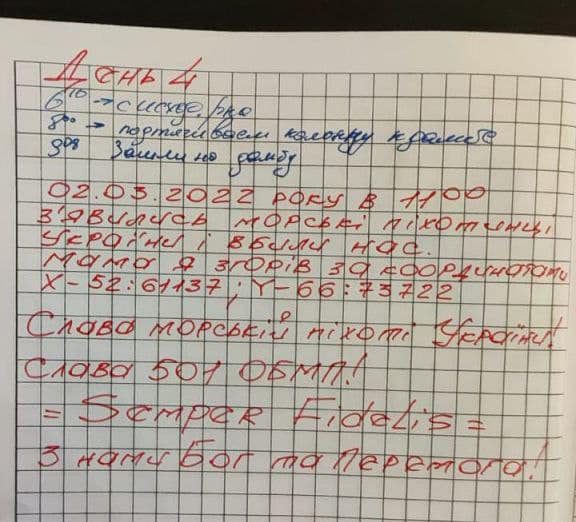 День 4
6¹⁰ →
8⁰⁰ → подтягиваем колонну к дамбе
9⁰⁸ Зашли на дамбу
02.03.2022 року в 11⁰⁰
з'явились морські піхотинці
України і вбили нас.
мама я згорів за координатами
X-52:61137; Y-66:73722
Слава морській піхоті України!
Слава 501 ОБМП!
= Semper Fidelis =
З нами Бог та Перемога!